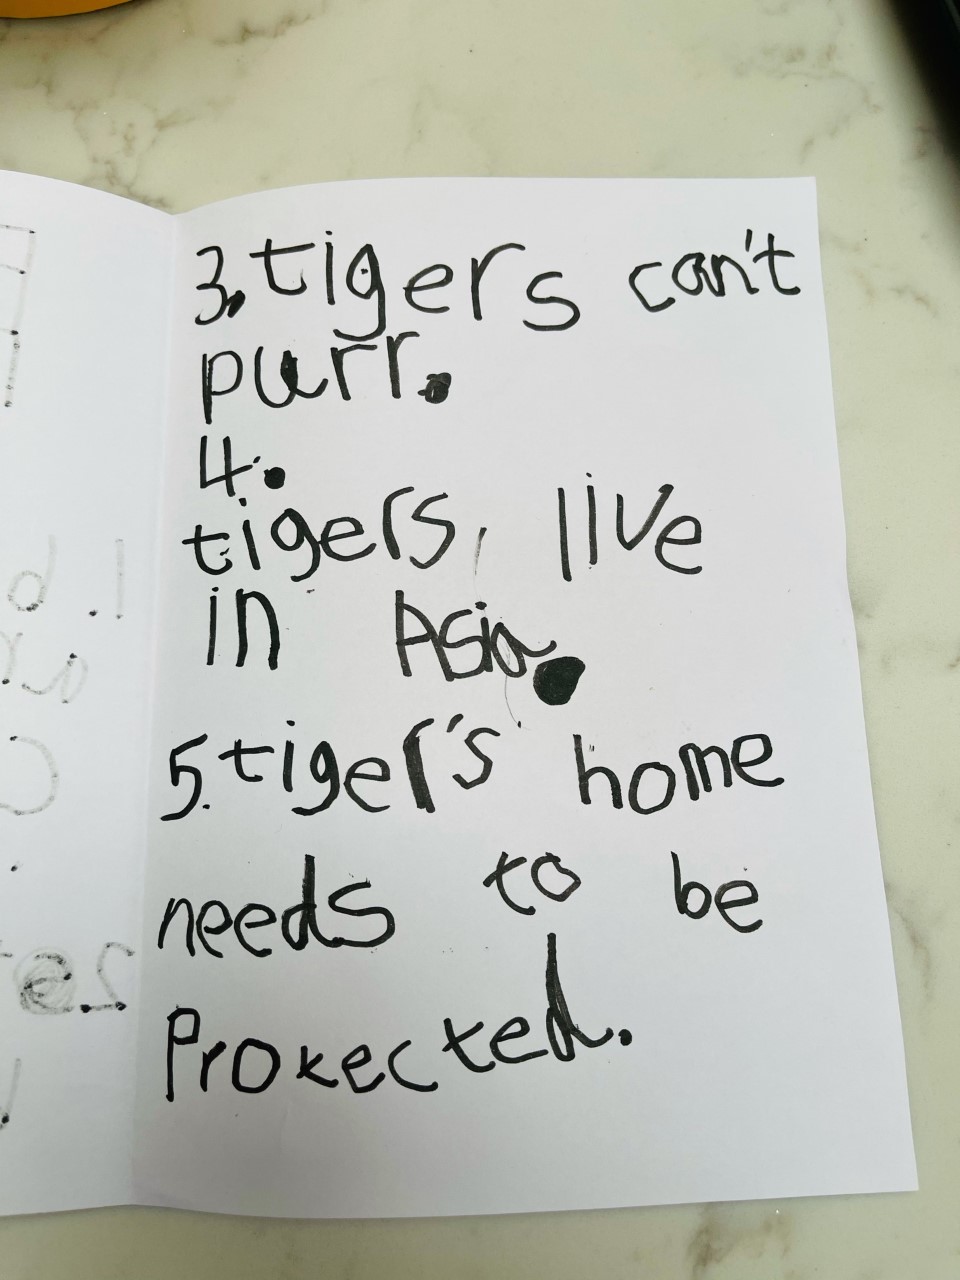 3. tigers can't
purr.
4.
tigers, live
in Asia.
5. tiger's home
needs to be
Protected.